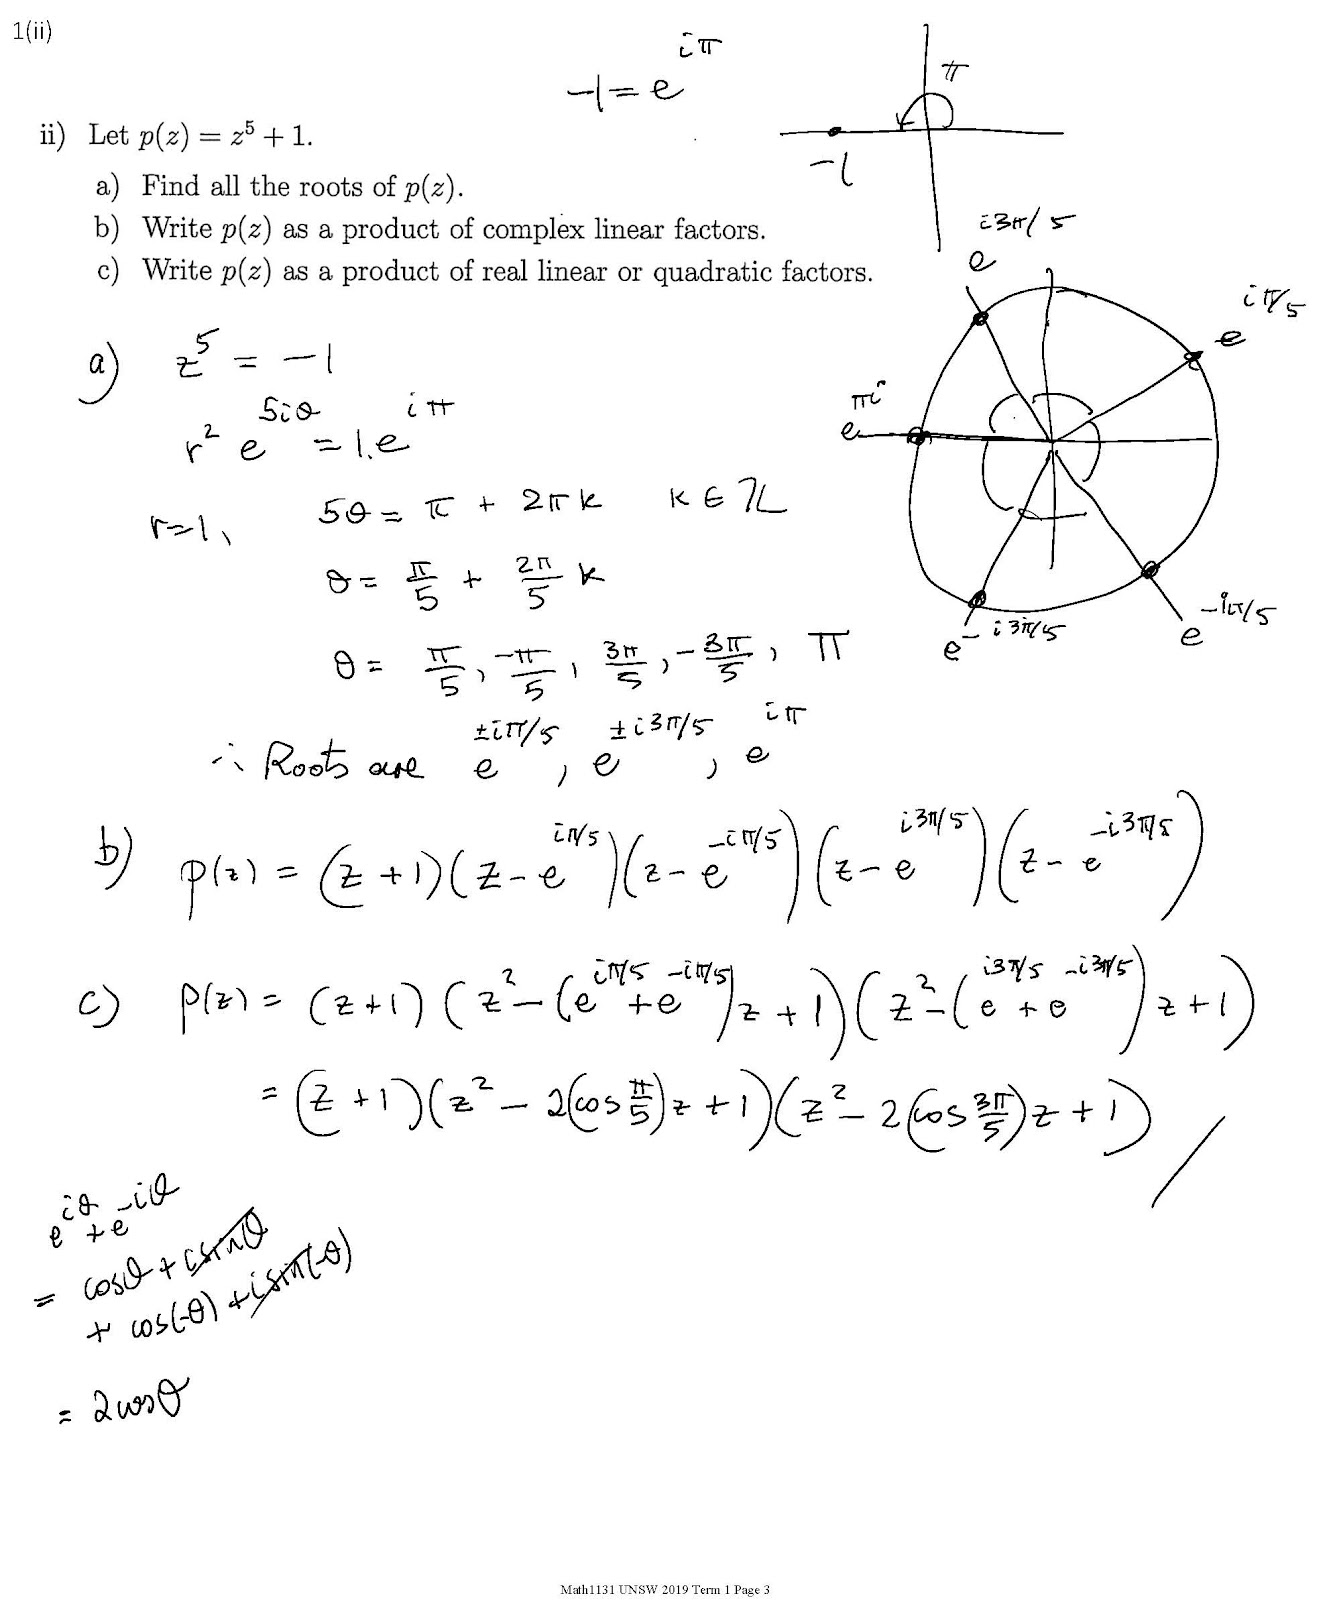 1(ii)
-1 = e^{iπ}
π
-1
ii) Let p(z) = z⁵ + 1.
a) Find all the roots of p(z).
b) Write p(z) as a product of complex linear factors.
c) Write p(z) as a product of real linear or quadratic factors.
e^{i3π/5}
e^{iπ/5}
e^{πi}
e^{-i3π/5}
e^{-iπ/5}
a) z⁵ = -1
r² e^{5iθ} = 1.e^{iπ}
r=1, 5θ = π + 2πk k ∈ ℤ
θ = π/5 + 2π/5 k
θ = π/5, -π/5, 3π/5, -3π/5, π
∴ Roots are e^{±iπ/5}, e^{±i3π/5}, e^{iπ}
b) p(z) = (z+1)(z - e^{iπ/5})(z - e^{-iπ/5})(z - e^{i3π/5})(z - e^{-i3π/5})
c) p(z) = (z+1)(z² - (e^{iπ/5} + e^{-iπ/5})z + 1)(z² - (e^{i3π/5} + e^{-i3π/5})z + 1)
= (z+1)(z² - 2(cos π/5)z + 1)(z² - 2(cos 3π/5)z + 1)
e^{iθ} + e^{-iθ}
= cosθ + isinθ
+ cos(-θ) + isin(-θ)
= 2cosθ
Math1131 UNSW 2019 Term 1 Page 3